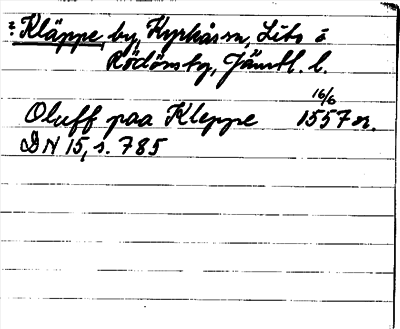 : Kläppe, by, Kyrkåsen, Lits o
Rödönsby, Jämtl. l.
16/6
Oluff paa Kleppe 1557 n.
DN 15, s. 785